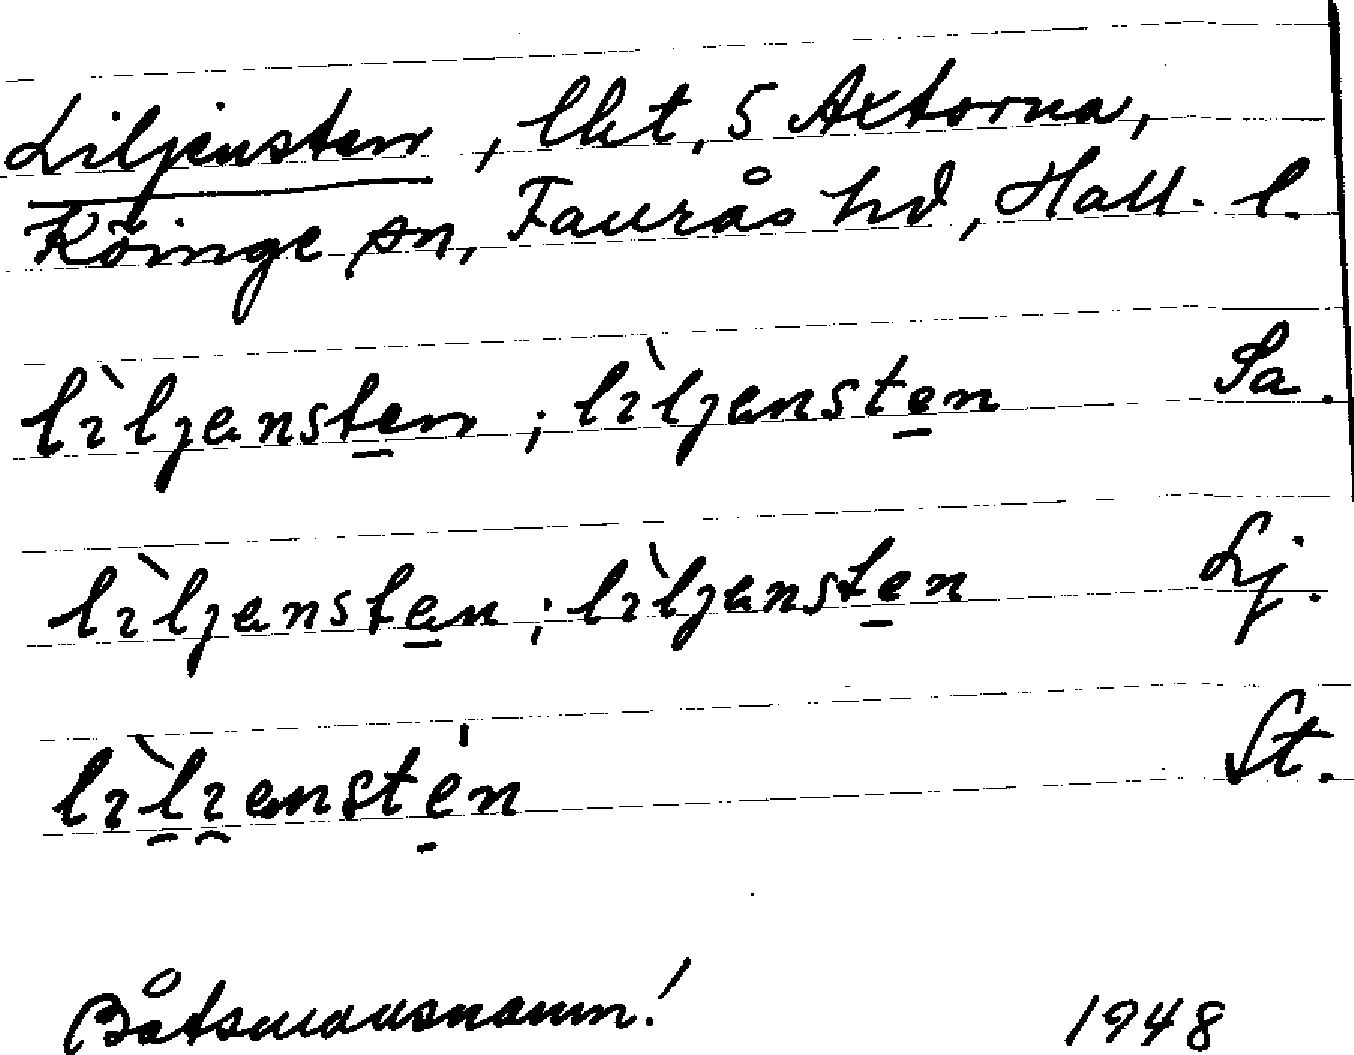 Liljensten, lht, 5 Axtorna,
Köinge sn, Faurås hd, Hall. l.
lìljensten; lìljensten Sa.
lìljensten; lìljensten Lj.
lìlıenste'n St.
Båtsmansnamn! 1948